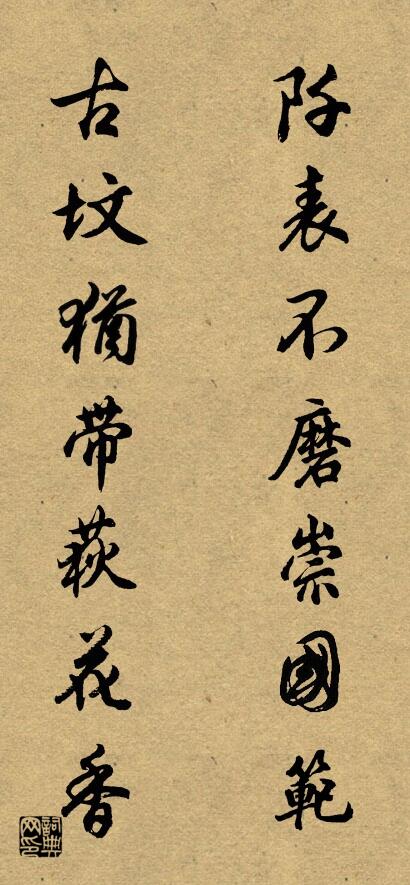 阡表不磨崇國範
古坟猶帶萩花香
詞典网印